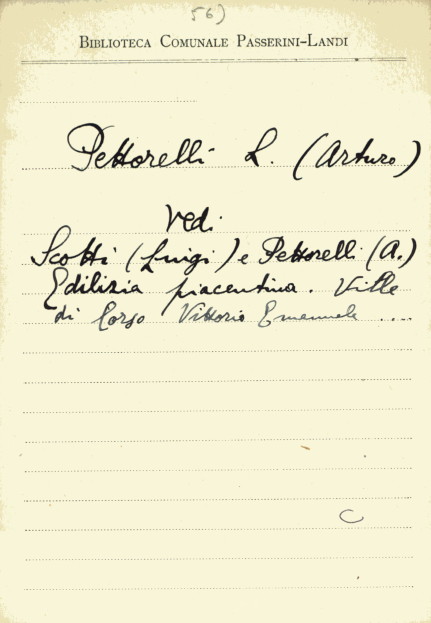 56)
BIBLIOTECA COMUNALE PASSERINI-LANDI
Pettorelli L. (Arturo)
Vedi
Scotti (Luigi) e Pettorelli (A.)
Edilizia piacentina. Ville
di Corso Vittorio Emanuele ....
C